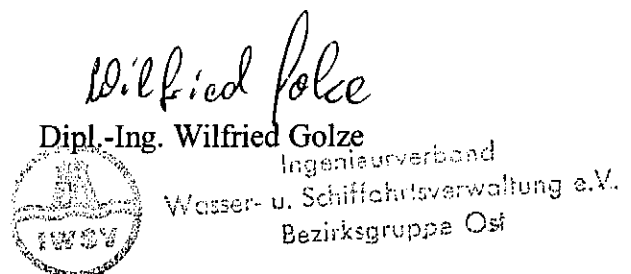 Wilfried Golze
Dipl.-Ing. Wilfried Golze
Ingenieurverband
Wasser- u. Schiffahrtsverwaltung e.V.
Bezirksgruppe Ost
IWSV